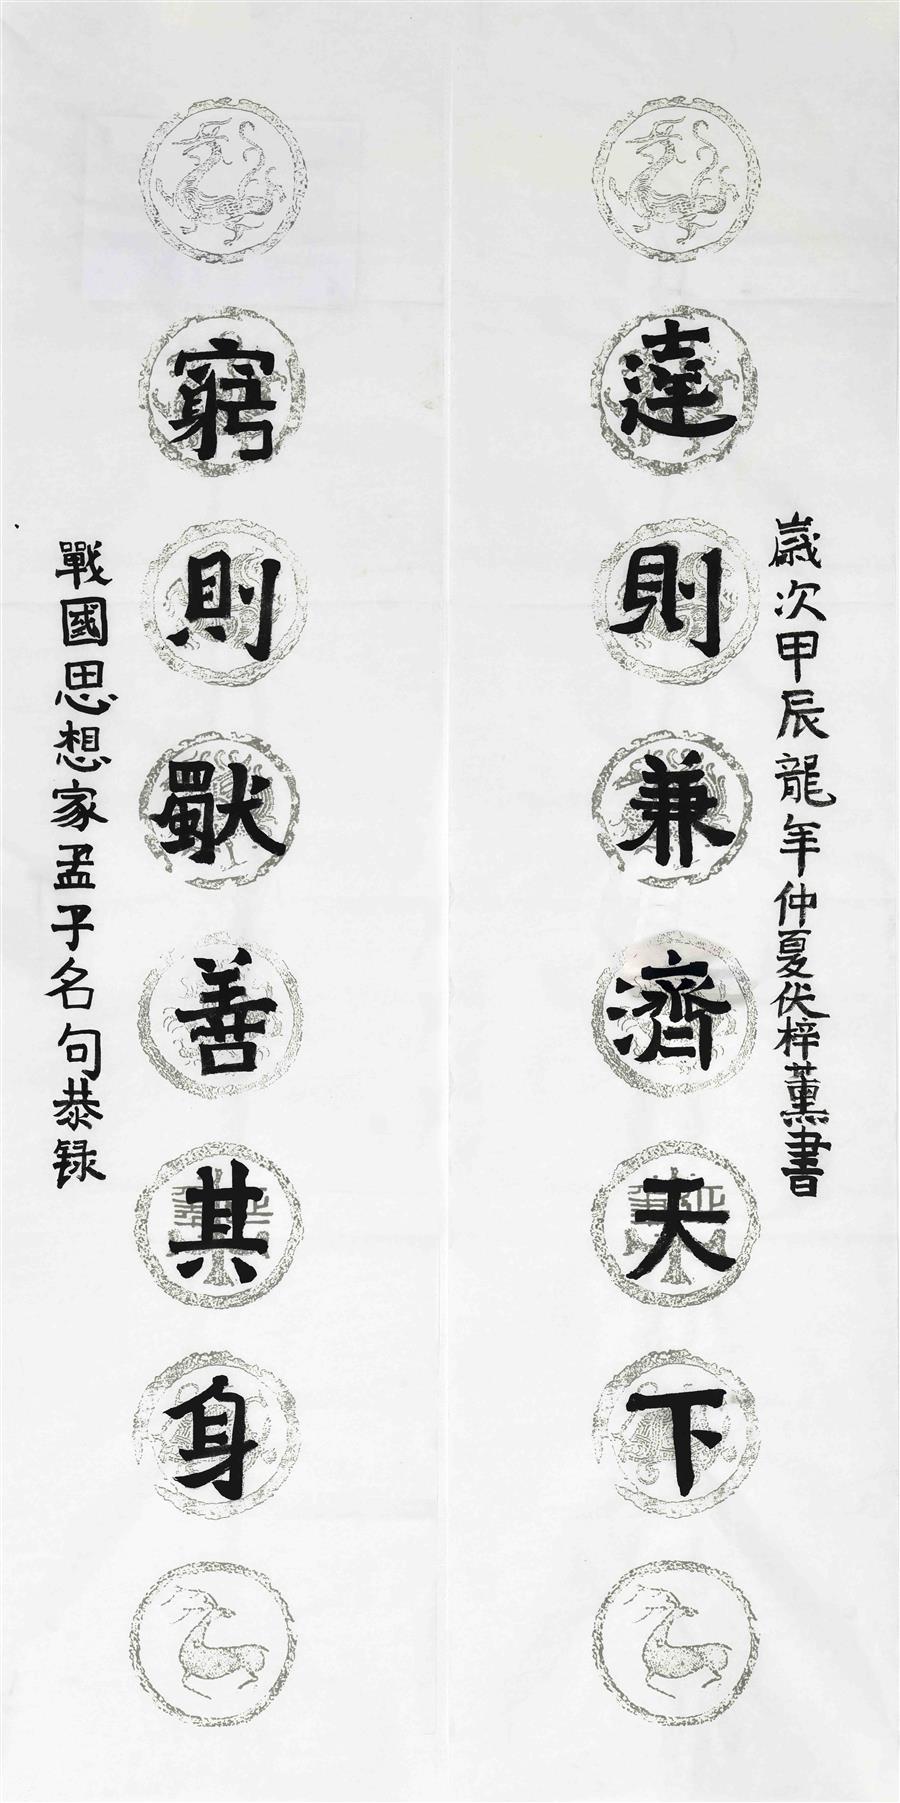 歲次甲辰龍年仲夏伏梓薰書
達則兼濟天下
窮則獨善其身
戰國思想家孟子名句恭録